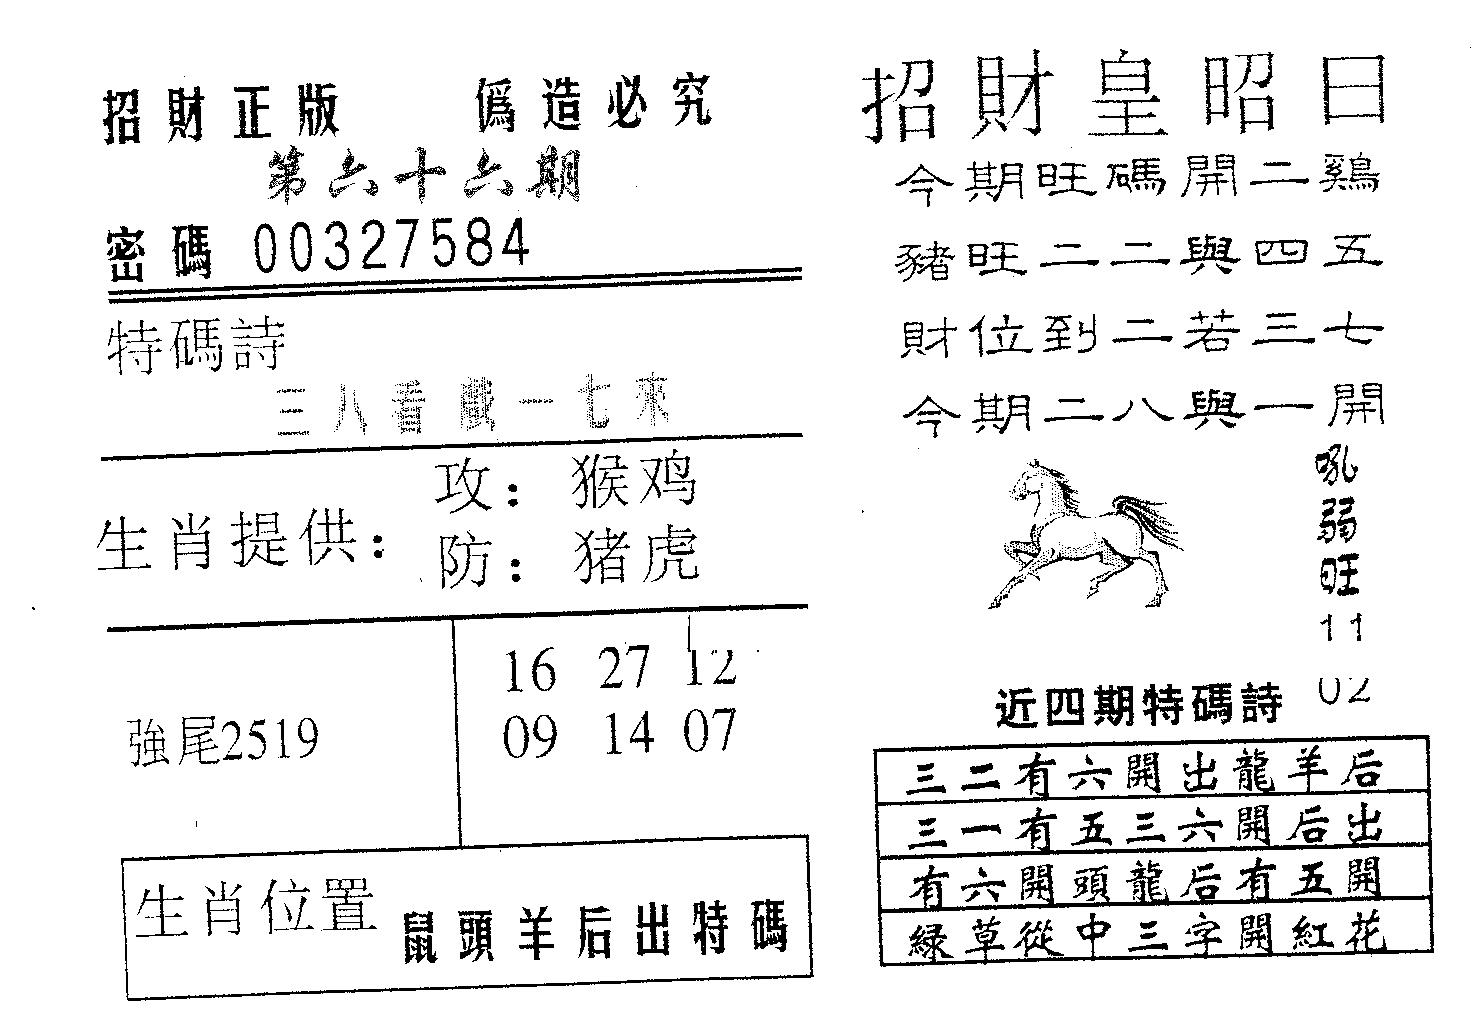 招財正版 僞造必究
第六十六期
密碼 00327584
特碼詩
三八看戲一七來
生肖提供：
攻：猴鸡
防：猪虎
強尾2519
16 27 12
09 14 07
生肖位置 鼠頭羊后出特碼
招財皇昭日
今期旺碼開二鷄
豬旺二二與四五
財位到二若三七
今期二八與一開
吼弱旺
11
02
近四期特碼詩
三二有六開出龍羊后
三一有五三六開后出
有六開頭龍后有五開
緑草從中三字開紅花